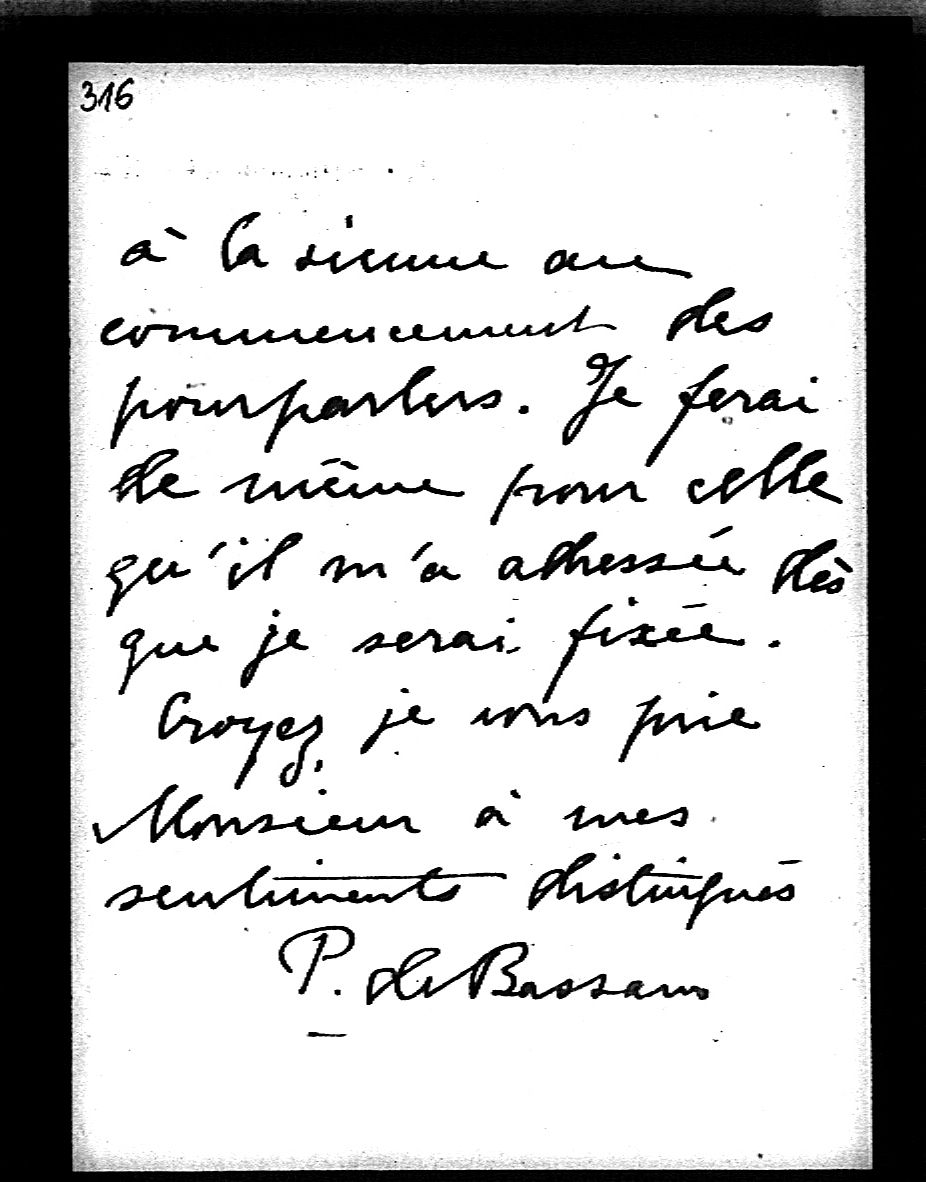 316
à la sienne au
commencement des
pourparlers. Je ferai
de même pour celle
qu'il m'a adressée dès
que je serai fixée.
Croyez, je vous prie
Monsieur à mes
sentiments distingués
P. de Bassano